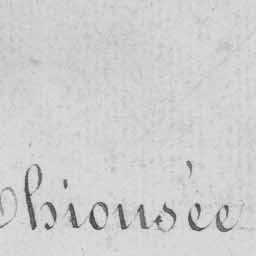 Chiousée